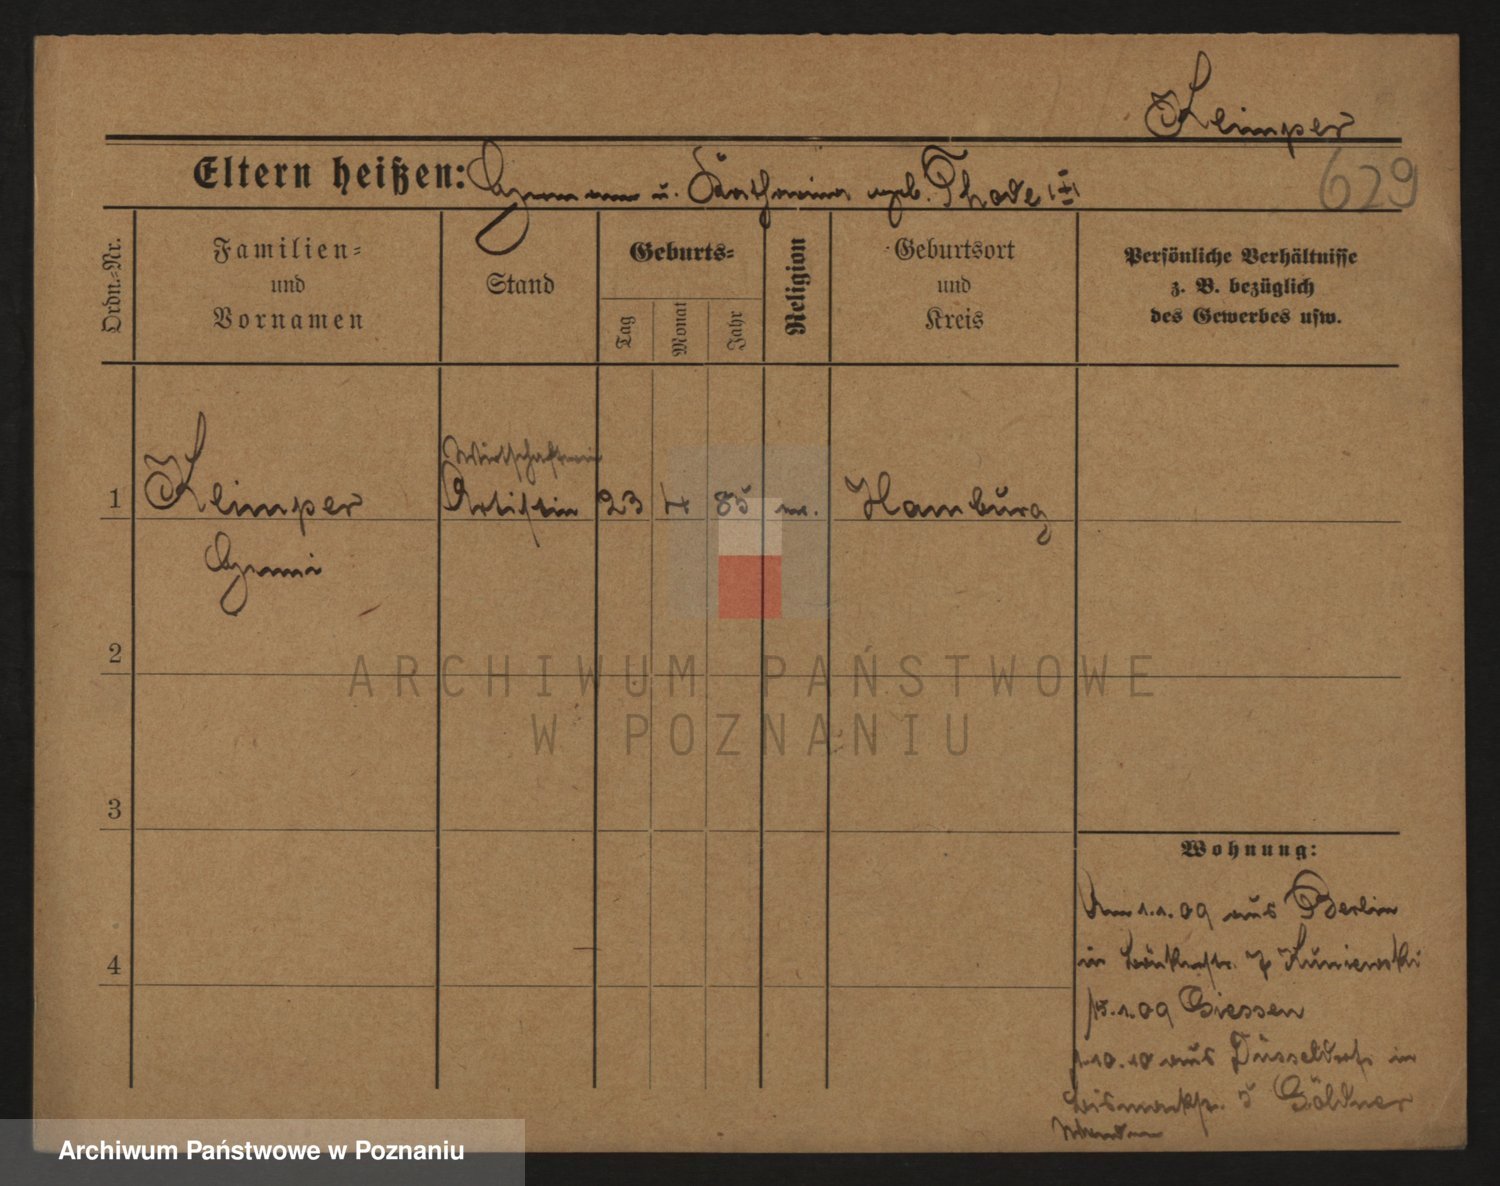 Klimper
629
Eltern heißen: Hermann u. Katharina geb. Thode
Ordn.-Nr.
Familien-
und
Vornamen
Stand
Geburts-
Tag
Monat
Jahr
Religion
Geburtsort
und
Kreis
Persönliche Verhältnisse
z. B. bezüglich
des Gewerbes usw.
Wirtschafterin
1 Klimper Artistin 23 4 85 m. Hamburg
2
3
4
Wohnung:
Am 1.1.09 aus Berlin
in Bäckerstr. 7
15.1.09 Giessen
1.10.10 aus Düsseldorf in
Bismarckstr. 5 Göldner
ARCHIWUM PAŃSTWOWE
W POZNANIU
Archiwum Państwowe w Poznaniu